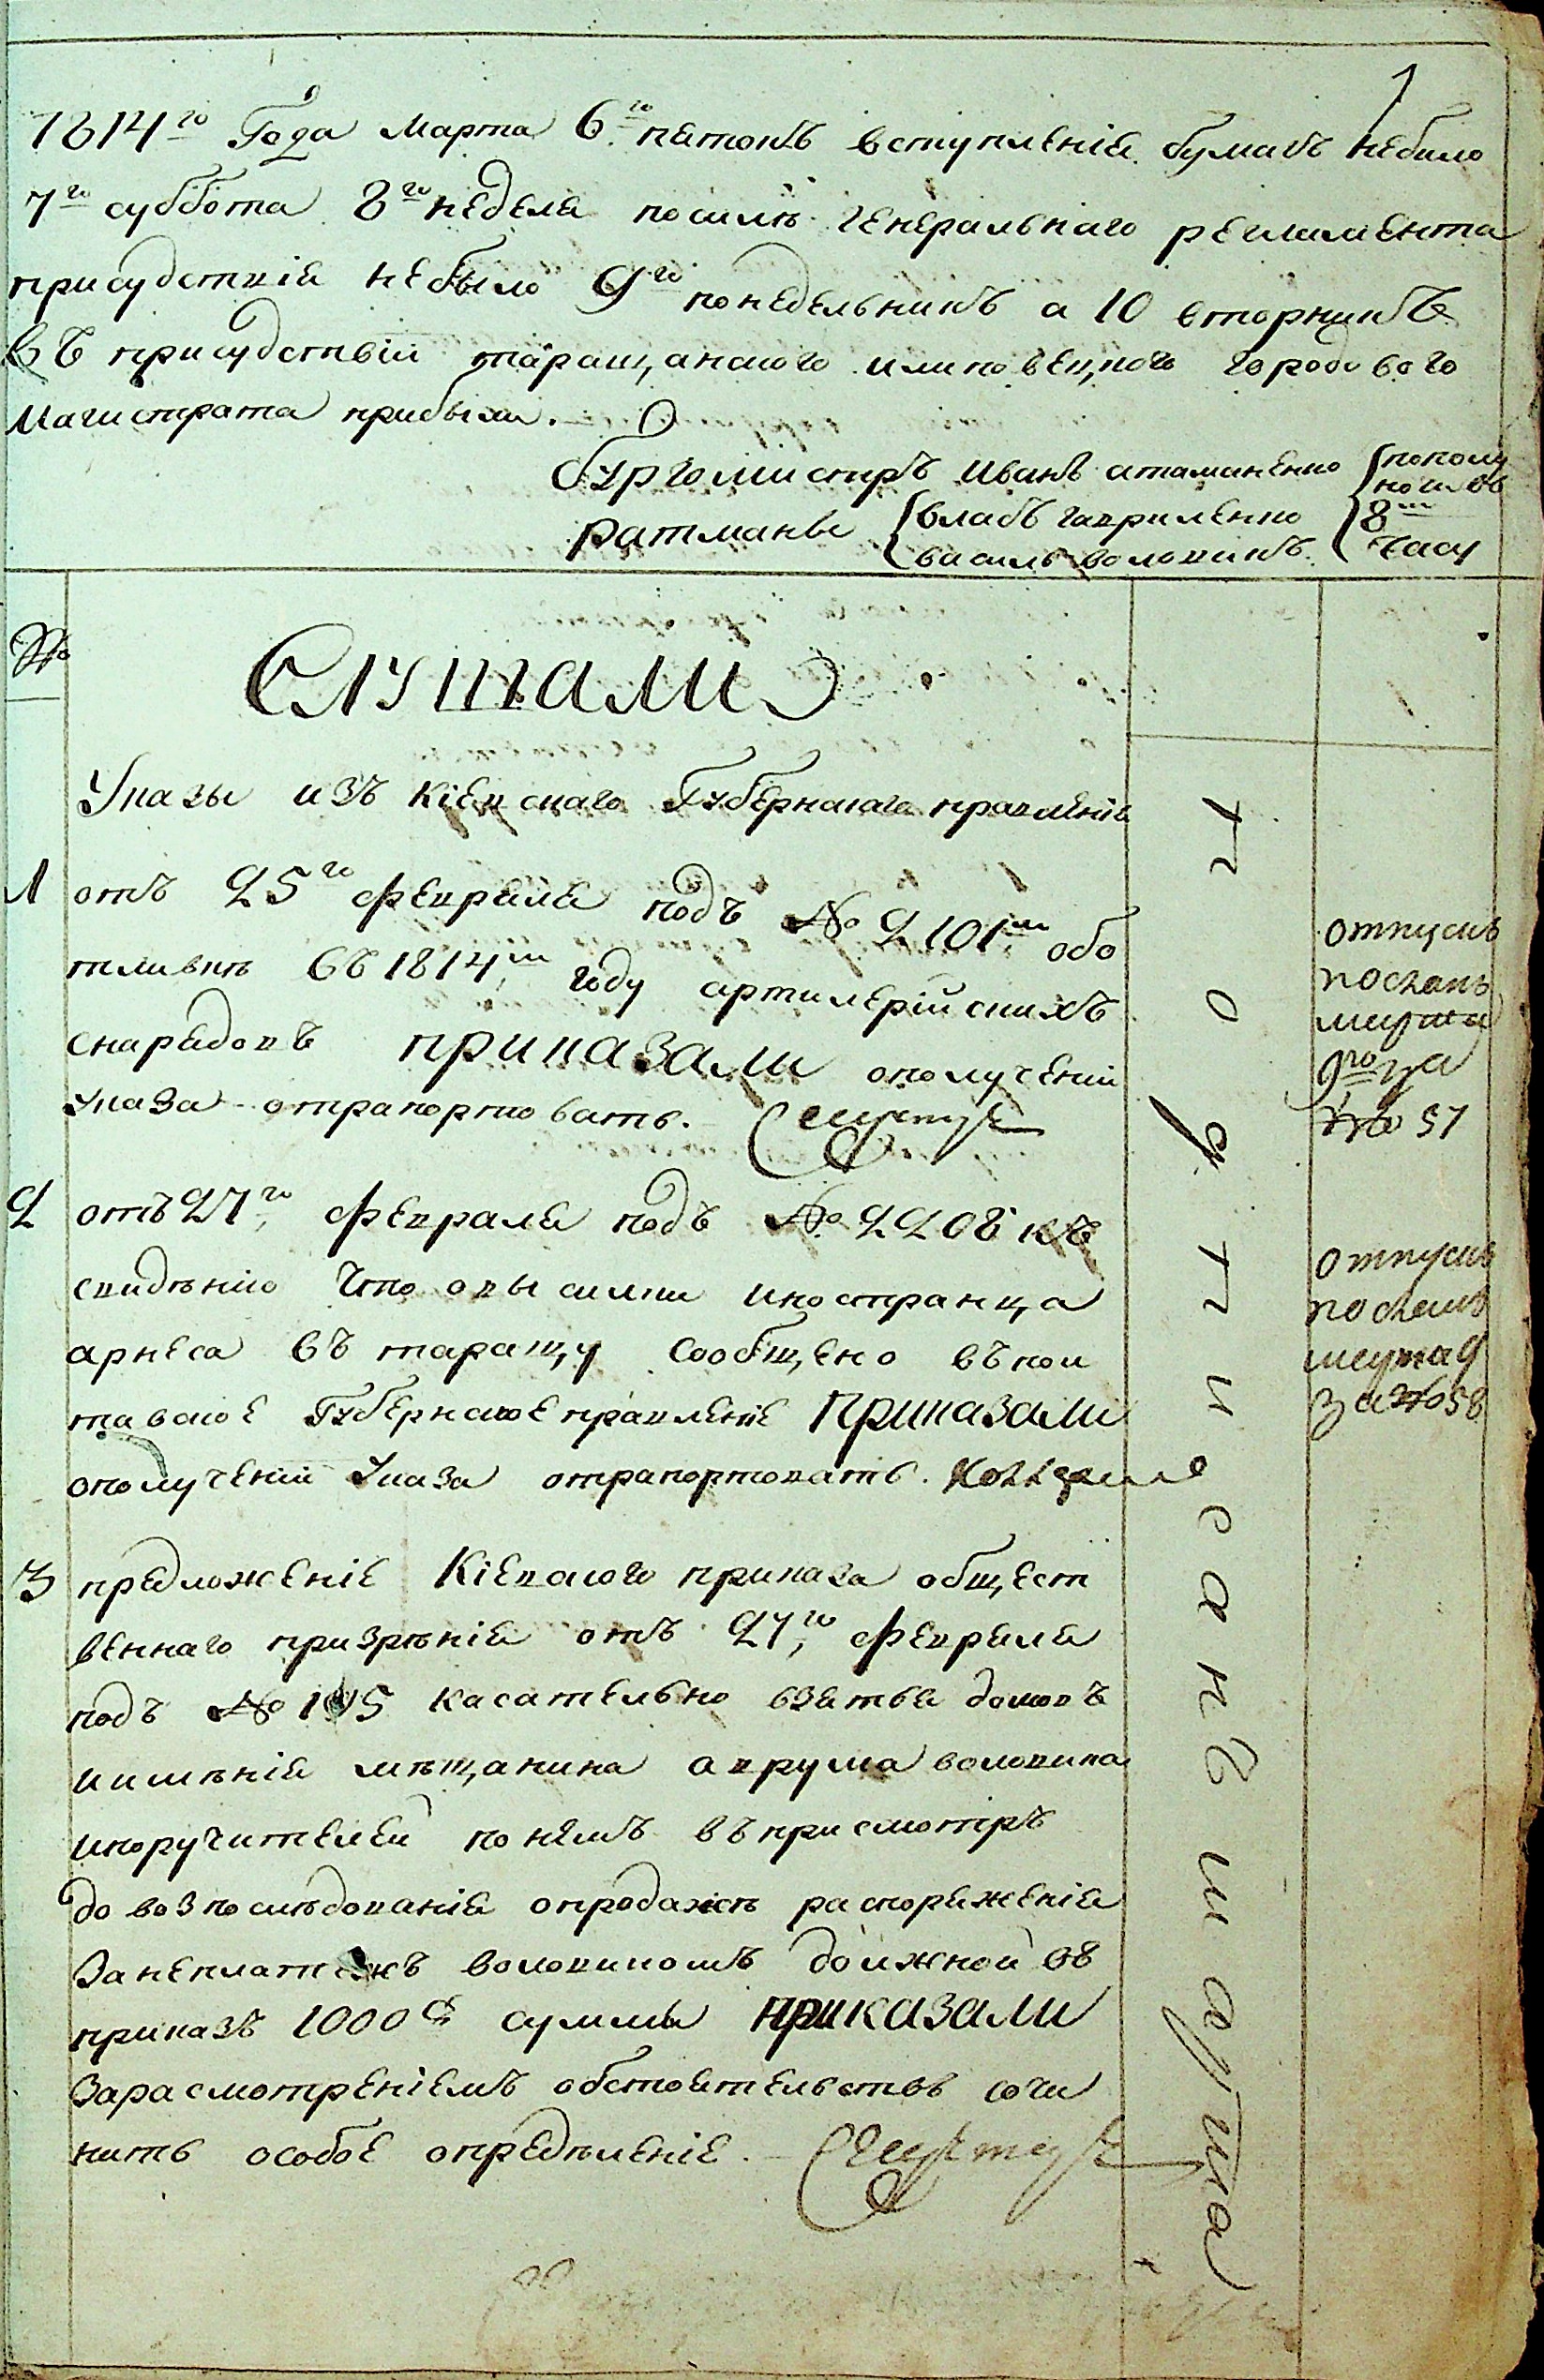 1814го Года Марта 6го пятокъ вступленія бумагъ небило
7го суббота 8го неделя посилѣ генеральнаго регламента
присудствія небыло 9го понедельникъ а 10 вторникъ
въ присудствіи таращанского илиповецкого городового
Магистрата прибыли.
бургомистръ иванъ атаманенко
пополу
ратманы влась гавриленко 8м
василь воловикъ. часу
№
Слушали
Указы изъ кіевскаго Губернскаго правленія
1 отъ 25го февраля подъ № 2101м обо
тливкѣ въ 1814м году артилерійскихъ
снарядовъ приказали ополученіи
указа отрапортовать.
2 отъ 27го, февраля подъ № 2208 къ
свидѣнію что овысилки иностранца
арнеса въ таращу сообщено въпол
тавское Губернское правленіе Приказали
ополученіи Указа отрапортовать.
3 предложеніе Кіевского приказа общест
веннаго призрѣнія отъ 27,го февраля
подъ № касательно взятья домовъ
иимѣнія мѣщанина аврума воловика
ипоручителей понемъ въприсмотръ
до возпослѣдованія опродажѣ распоряженія
Занеплатежъ воловикомъ должной въ
приказъ 1000 сумми приказали
Зарасмотреніемъ обстоятельствъ сочи
нить особое определеніе.
отпускъ
посланъ
марта
9го за
№ 57
отпускъ
посланъ
марта 9
за №58